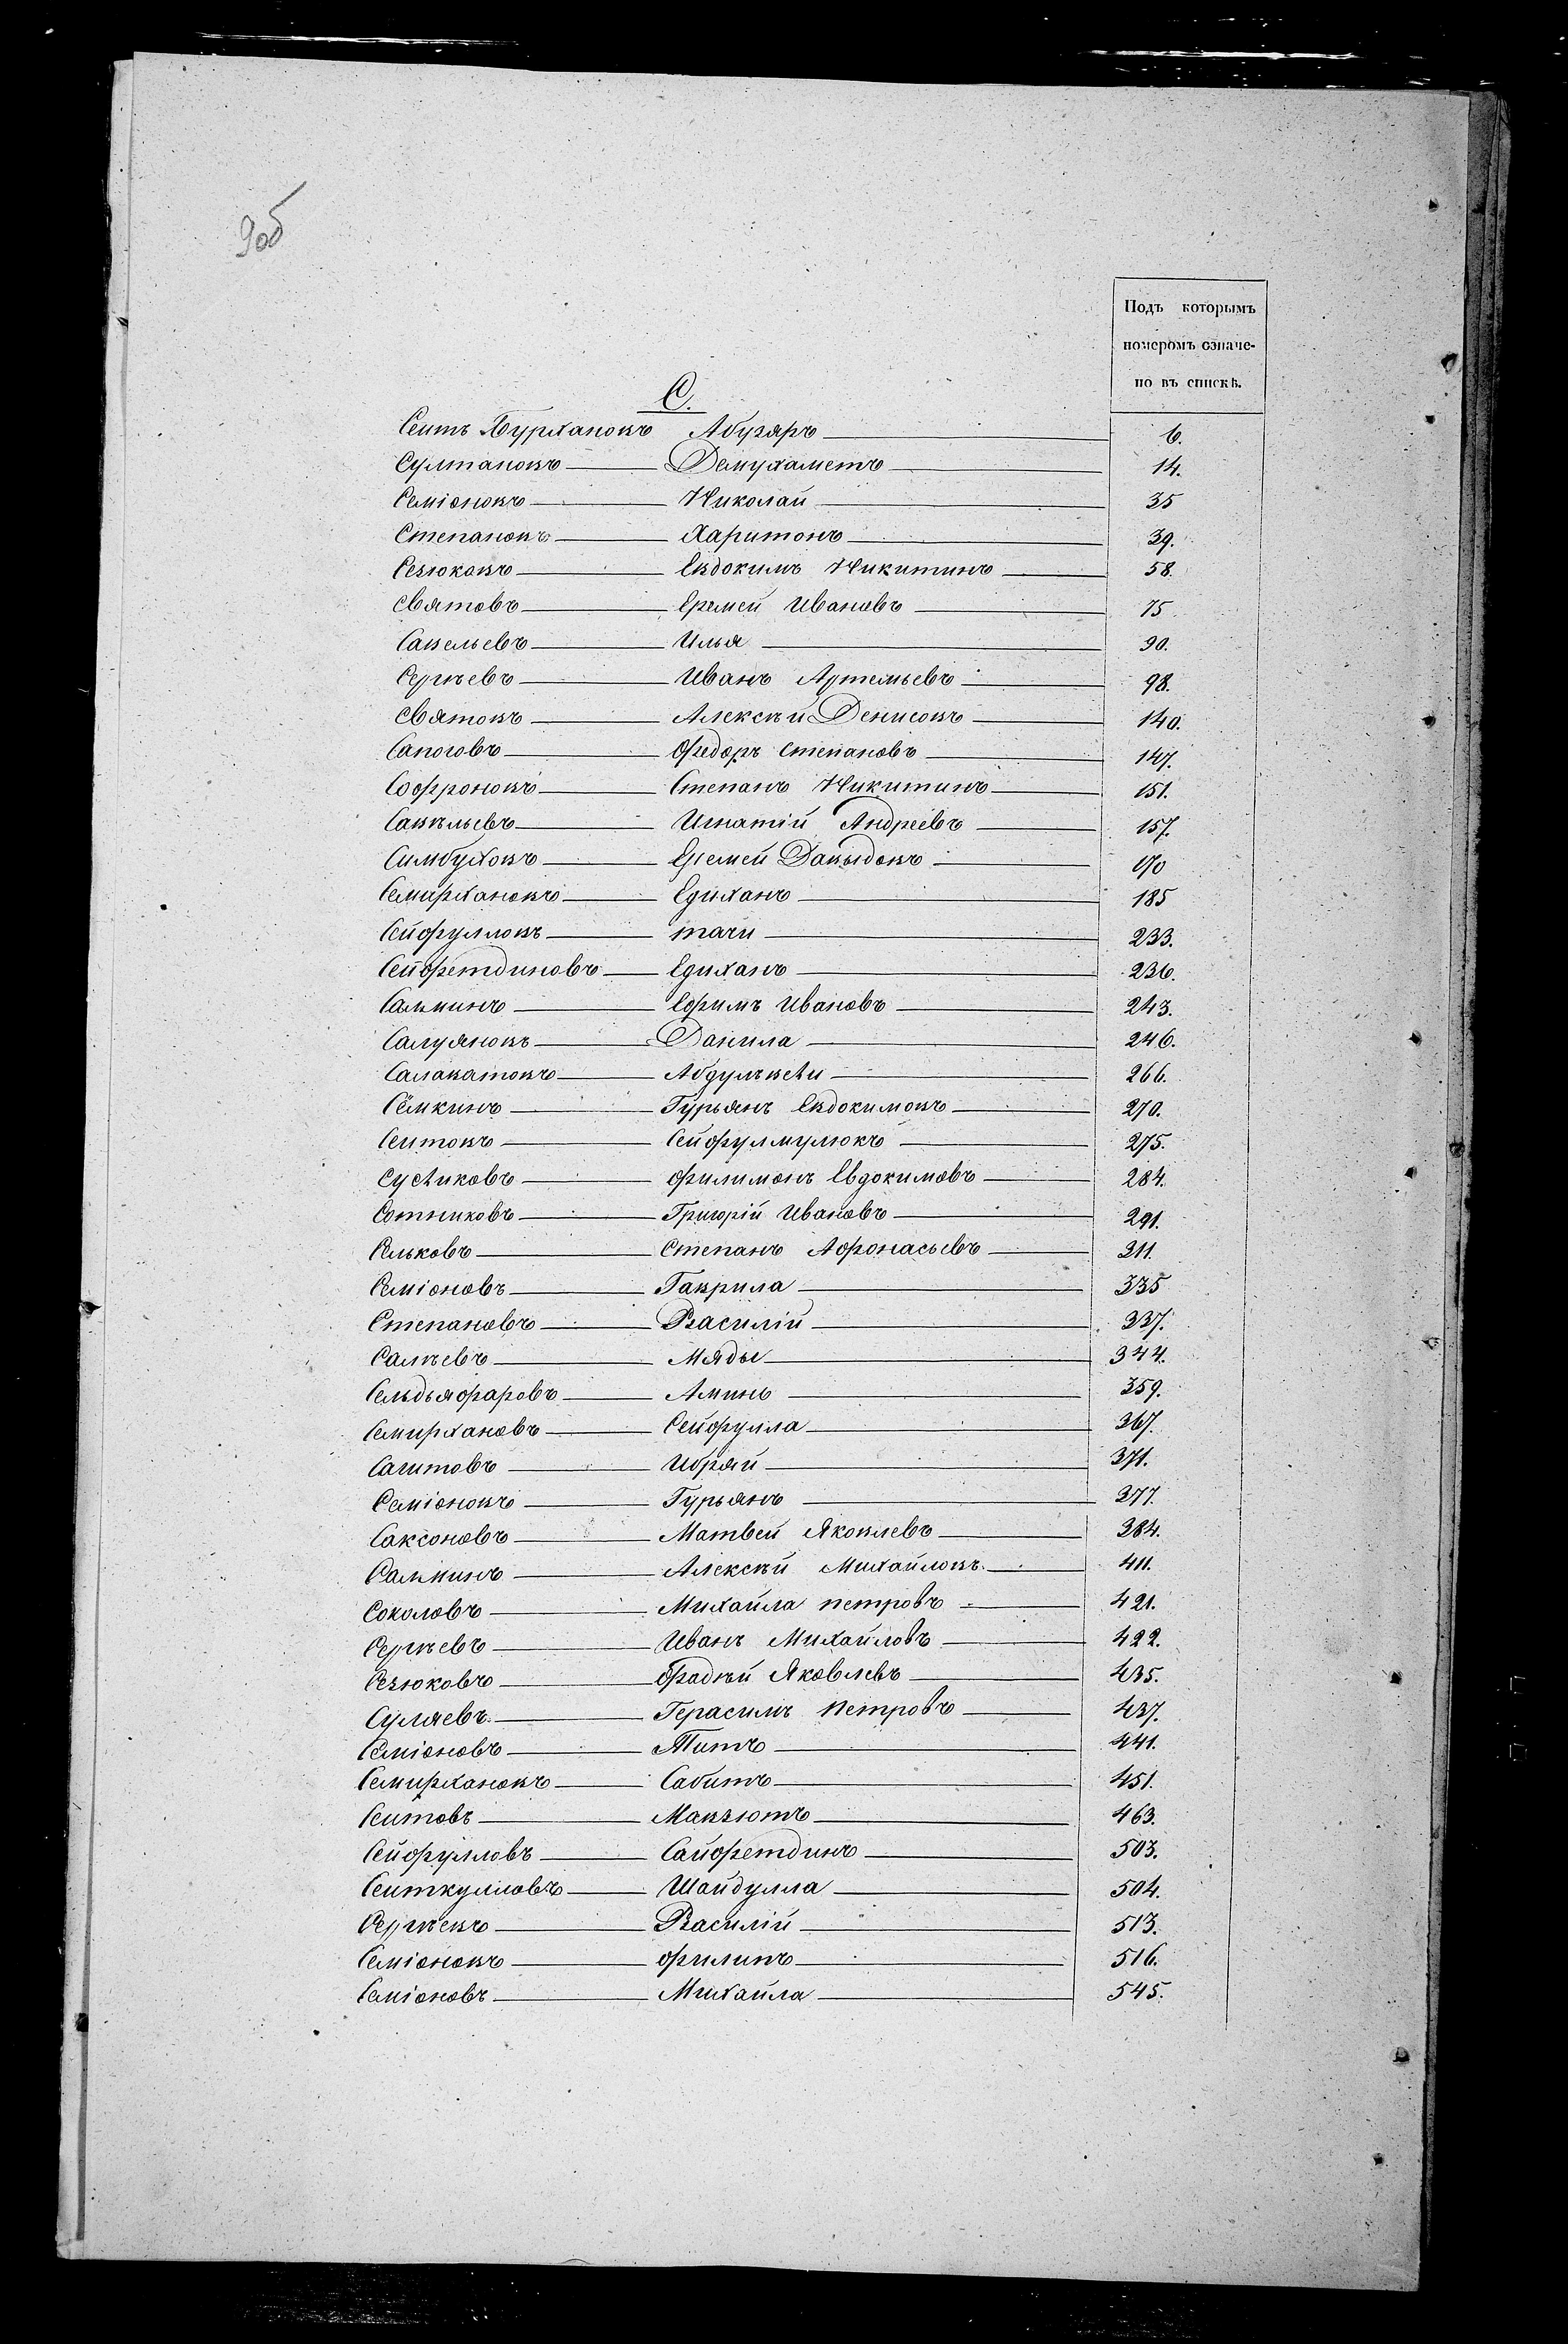 9об
Подъ которымъ
номеромъ означе-
но въ спискѣ.
С.
Сеитъ Бурхановъ Абузяръ 6.
Султановъ Демухаметъ 14.
Семіоновъ Николай 35
Степановъ Харитонъ 39.
Сезюковъ Евдокимъ Никитинъ 58.
Святовъ Еремей Ивановъ 75
Савельевъ Илья 90.
Сергѣевъ Иванъ Артемьевъ 98.
Святовъ Алексѣй Денисовъ 140.
Сапоговъ Федоръ Степановъ 147.
Софроновъ Степанъ Никитинъ 151.
Савельевъ Игнатій Андреевъ 157.
Симбуховъ Еремей Давыдовъ 170
Семирхановъ Едиханъ 185
Сейфулловъ тачи 233.
Сейфетдиновъ Едиханъ 236.
Салминъ Ефимъ Ивановъ 243.
Салуяновъ Данила 246.
Салаватовъ 266.
Сёмкинъ Гурьянъ Евдокимовъ 270.
Сеитовъ Сейфулмулюковъ 275.
Сусликовъ Филимонъ Евдокимовъ 284.
Сотниковъ Григорій Ивановъ 291.
Сельковъ Степанъ Афонасьевъ 311.
Семіоновъ Гаврила 335
Степановъ Василій 337.
Салѣевъ Мяды 344.
Сельдьяфаровъ Аминь 359.
Семирхановъ Сейфулла 367.
Сагитовъ Ибряй 371.
Семіоновъ Гурьянъ 377.
Саксоновъ Матвей Яковлевъ 384.
Салминъ Алексѣй Михайловъ 411.
Соколовъ Михайла петровъ 421.
Сергѣевъ Иванъ Михайловъ 422.
Сезюковъ Фадѣй Яковлевъ 435.
Суляевъ Герасимъ Петровъ 437.
Семіоновъ Титъ 441.
Семирхановъ Сабитъ 451.
Сеитовъ Мавзютъ 463.
Сейфулловъ Сайфетдинъ 503.
Сеиткуловъ Шайдулла 504.
Сергѣевъ Василій 513.
Семіоновъ Филипъ 516.
Семіоновъ Михайла 545.